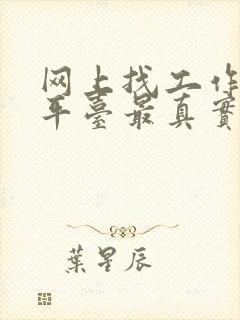 网上找工作
平臺最真實
葉星辰